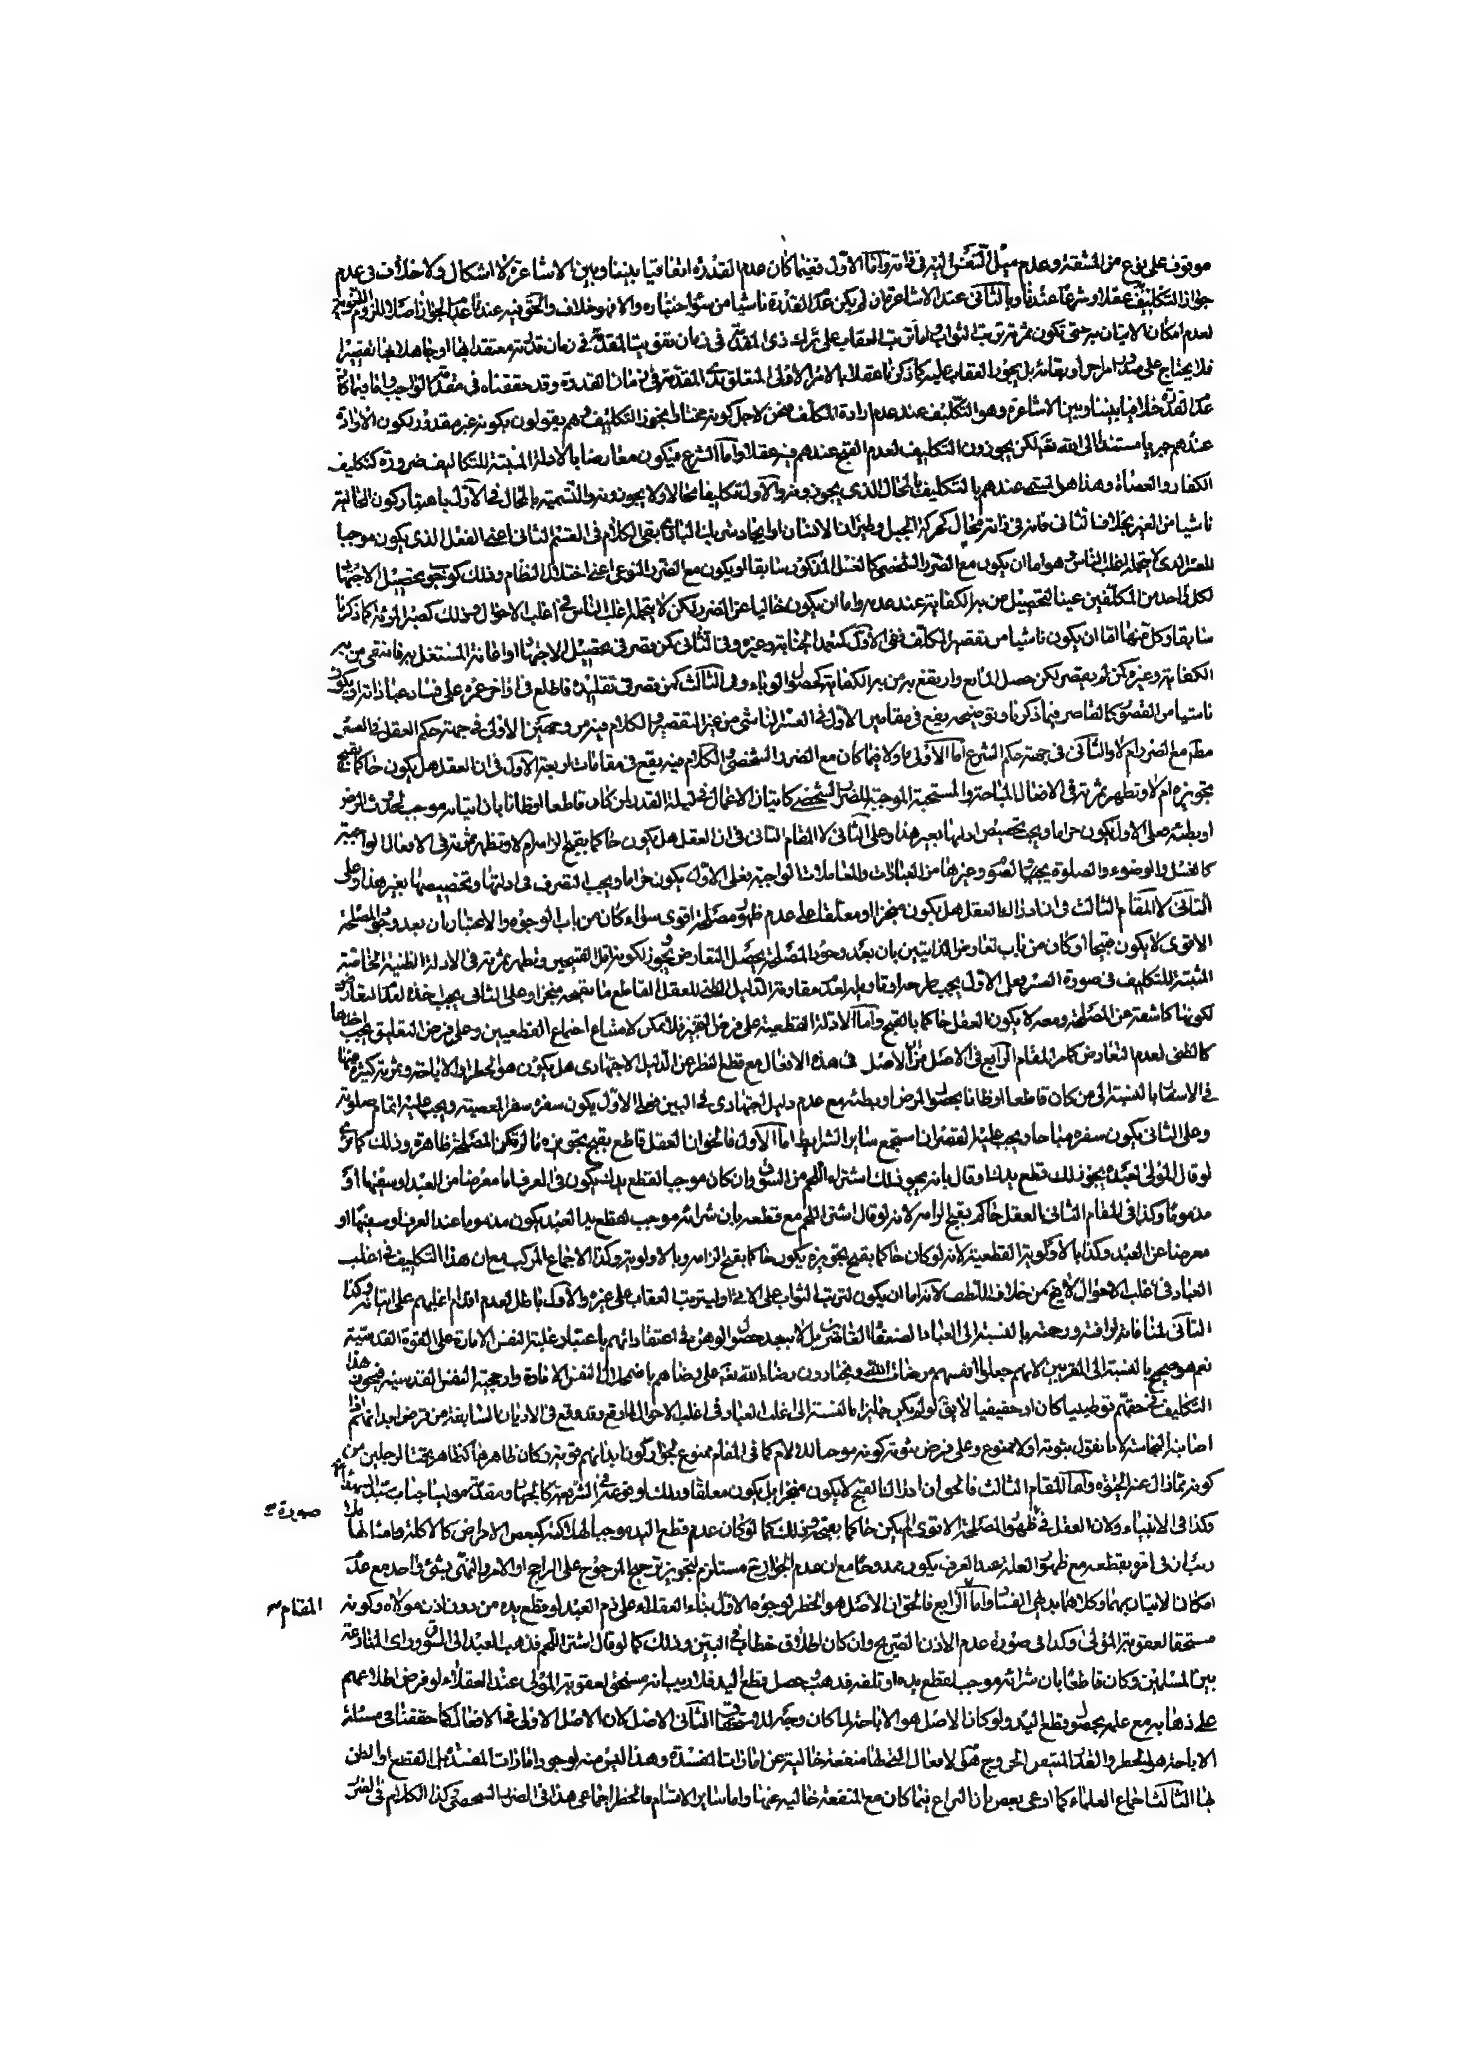 موقوف على نوع من المشقة وعدم ميل النفس اليه في ذاته واما الاول ففيما كان عدم القدرة اتفاقيا بيننا وبين الاشاعرة لا اشكال ولا خلاف في عدم
جواز التكليف عقلا وشرعا عندنا وبالثاني عند الاشاعرة ان لم يكن عدم القدرة ناشيا من سوء اختياره والا فهو خلاف والحق فيه عندنا عدم الجواز اصلا للزوم
لعدم امكان الاتيان به حتى تكون ثمرته ترتب الثواب اما ترتب العقاب على ترك ذى المقدمة في زمان تفويت المقدمة في زمان قدرته معتقدا بها او جاهلا بها تقصيرا
فلا يحتاج على امر اخر او بقائه بل يجوز العقاب عليه كما ذكرنا عقلا بالامر الاولى المتعلق بذى المقدمة في زمان القدرة وقد حققناه في مقدمة الواجب واما فيما كان
عدم القدرة خلافيا بيننا وبين الاشاعرة وهو التكليف عند عدم ارادة المكلف فنحن لاجل كونه مختارا يجوز التكليف وهم يقولون بكونه غير مقدور لكون الارادة
عندهم جبريا مستندا الى الله تعم لكن يجوزون التكليف لعدم القبح عندهم فيه عقلا واما الشرع فيكون معارضا بالادلة المثبتة للتكاليف ضرورة كتكليف
الكفار والعصاة وهذا هو المسمى عندهم بالتكليف بالمحال الذى يجوزونه والاول تكليفا محالا ولا يجوزونه والتسمية بالمحال في الاول باعتبار كون المحالية
ناشيا من الغير بخلاف الثاني فانه في ذاته محال كحركة الجبل وطيران الانسان او ايجاد شريك البارى بقى الكلام في القسم الثاني اعنى الفعل الذى يكون موجبا
للعسر الذى لا يتحمله اغلب الناس هو اما ان يكون مع الضرر الشخصى كالغسل المذكور سابقا او يكون مع الضرر النوعى اعنى اختلال النظام وذلك كوجوب تحصيل الاجتهاد
لكل واحد من المكلفين عينا لتحصيل من به الكفاية عند عدمه واما ان يكون خاليا عن الضرر لكن لا يتحمله اغلب الناس في اغلب الاحوال وذلك كصبر المرئة كما ذكرنا
سابقا وكل منها اما ان يكون ناشيا من تقصير المكلف ففى الاول كتعمد الجنابة وغيره وفى الثاني كمن قصر في تحصيل الاجتهاد او اعانة المشتغل به فانتفى من به
الكفاية وغيره كمن لم يقصر لكن حصل المانع وارتفع به من به الكفاية كحصول الوباء وفى الثالث كمن قصر في تقليده فاطلع في اواخر عمره على فساد عباداته او يكون
ناشيا من القصور كالقاصر فيما ذكرنا وتوضيحه يقع في مقامين الاول في العسر الناشى من غير التقصير والكلام فيه من وجهين الاولى في جهة حكم العقل في العسر
مطم مع الضرر ام لا والثاني في جهة حكم الشرع اما الاولى اولا فيما كان مع الضرر الشخصى والكلام فيه يقع في مقامات اربعة الاول في ان العقل هل يكون حاكما بقبح
تجويزه ام لا وتظهر ثمرته في الافعال المباحة والمستحبة الموجبة للضرر الشخصى كاتيان الاعمال في ليلة القدر لمن كان قاطعا او ظانا بان اتيانه موجب لحدوث المرض
او بطئه فعلى الاول يكون حراما ويجب تخصيص ادلتها بغير هذا وعلى الثاني لا المقام الثاني في ان العقل هل يكون حاكما بقبح الزامه ام لا وتظهر ثمرته في الافعال الواجبة
كالغسل والوضوء والصلوة والصوم وغيرها من العبادات والمعاملات الواجبة فعلى الاول يكون حراما ويجب التصرف في ادلتها وتخصيصها بغير هذا وعلى
الثاني لا المقام الثالث في ان ادراك العقل هل يكون منجزا او معلقا على عدم ظهور مصلحة اقوى سواء كان من باب الوجوه والاعتبار بان بعد وجود المصلحة
الاقوى لا يكون قبيحا او كان من باب تعارض الذاتيين بان بعد وجود المصلحة يحصل التعارض ويجوز لكونه اقل القبيحين وتظهر ثمرته في الادلة الظنية الخاصة
المثبتة للتكليف في صورة العسر فعلى الاول يجب طرحه او تاويله لعدم مقاومة الدليل الظنى للعقل القاطع ما بقبحه منجزا وعلى الثاني يجب اخذه لعدم التعارض
لكونها كاشفة عن المصلحة ومعه لا يكون العقل حاكما بالقبح واما الادلة القطعية على فرض التنجيز فلا يمكن لامتناع اجتماع القطعيين وعلى فرض التعليق يجب اخذها
كالظنى لعدم التعارض كما مر المقام الرابع في الاصل من ان الاصل في هذه الافعال مع قطع النظر عن الدليل الاجتهادى هل يكون هو الحظر او الاباحة وثمرته كثيرة منها
في الاسفار بالنسبة الى من كان قاطعا او ظانا بحصول المرض او بطئه مع عدم دليل اجتهادى في البين فعلى الاول يكون سفره سفر المعصية ويجب عليه اتمام صلوته
وعلى الثاني يكون سفره مباحا ويجب عليه القصر ان استجمع ساير الشرايط اما الاول فالحق ان العقل قاطع بقبح تجويزه ما لم تكن المصلحة ظاهرة وذلك كما ترى
لو قال المولى لعبده يجوز لك قطع يدك او قال بانه يجوز لك اشتراء اللحم من السوق وان كان موجبا لقطع يدك يكون في العرف اما معرضا من العبد او سفيها او
مذموما وكذا في المقام الثاني العقل حاكم بقبح الزامه لانه لو قال اشتر اللحم مع قطعه بان شرائه موجب لقطع يد العبد يكون مذموما عند العرف او سفيها او
معرضا عن العبد وكذا بالاولوية القطعية لانه لو كان حاكما بقبح تجويزه يكون حاكما بقبح الزامه وبالاولوية وكذا الاجماع المركب مع ان هذا التكليف في اغلب
العباد في اغلب الاحوال لا يخ من خلاف اللطف لانه اما ان يكون لترتب الثواب على الاتيان او ليترتب العقاب على غيره والاول باطل لعدم اقدام اغلبهم على اتيانه وكذا
الثاني لمنافاته لرافته ورحمته بالنسبة الى العباد الضعفاء القاصرين بل لا يبعد حصول الوهن في اعتقاداتهم باعتبار غلبة النفس الامارة على القوة القدسية
نعم هو صحيح بالنسبة الى المقربين لانهم جعلوا انفسهم مرضات الله ويختارون رضاء الله تعم على رضاهم باضمحلال النفس الامارة وارجحية النفس القدسية فيجوز هذا
التكليف في حقهم توطينيا كان او حقيقيا لا يق لو لم يكن جايزا بالنسبة الى اغلب العباد في اغلب الاحوال لما وقع وقد وقع في الاديان السابقة من قرض ابدانهم اذا
اصابه النجاسة لانا نقول ثبوته اولا ممنوع وعلى فرض ثبوته كونه موجبا للالام كما في المقام ممنوع لجواز كون ابدانهم قوية وكان ظاهرها كظاهر تحت الرجلين من
كونه تماذال عنه الحيوة واما المقام الثالث فالحق ان ادراك القبح لا يكون منجزا بل يكون معلقا وذلك لوقوعه في الشريعة كالجهاد ومقدمة مولينا جناب سيد الشهداء
وكذا في الانبياء ولان العقل في ظهور المصلحة الاقوى لم يكن حاكما بقبحه وذلك كما لو كان عدم قطع اليد موجبا لهلاكته كبعض الامراض كالاكلة وامثالها
صورة
ريب ان في امره بقطعه مع ظهور العلة عند العرف يكون ممدوحا مع ان عدم الجواز ح مستلزم لتجويز ترجيح المرجوح على الراجح او الامر والنهى بشئ واحد مع عدم
امكان الاتيان بهما وكلاهما بديهى الفساد واما الرابع فالحق ان الاصل هو الحظر لوجوه الاول بناء العقلاء على ذم العبد لو قطع يده من دون اذن مولاه وكونه
المقام
مستحقا لعقوبة المولى وكذا في صورة عدم الاذن الصريح وان كان اطلاق خطاب في البين وذلك كما لو قال اشتر اللحم فذهب العبد الى السوق وراى المنازعة
بين المسلمين وكان قاطعا بان شرائه موجب لقطع يده او تلفه فذهب وحصل قطع اليد فلا ريب انه مستحق لعقوبة المولى عند العقلاء لو فرض اطلاعهم
على ذهابه مع علمه بحصول قطع اليد ولو كان الاصل هو الاباحة لما كان وجه لاستحقاقه الثاني الاصل لان الاصل الاولى في الافعال كما حققنا في مسئلة
الاباحة هو الحظر والقدر المتيقن الخروج هو الافعال التى لها منفعة خالية عن امارات المفسدة وهذا ليس منه لوجود امارات المفسدة بل القطع او الظن
بها الثالث اجماع العلماء كما ادعى بعض بان النزاع فيما كان مع المنفعة خالية عنها واما ساير الاقسام فالحظر اجماعى هذا في الضرر الشخصى وكذا الكلام في الضرر